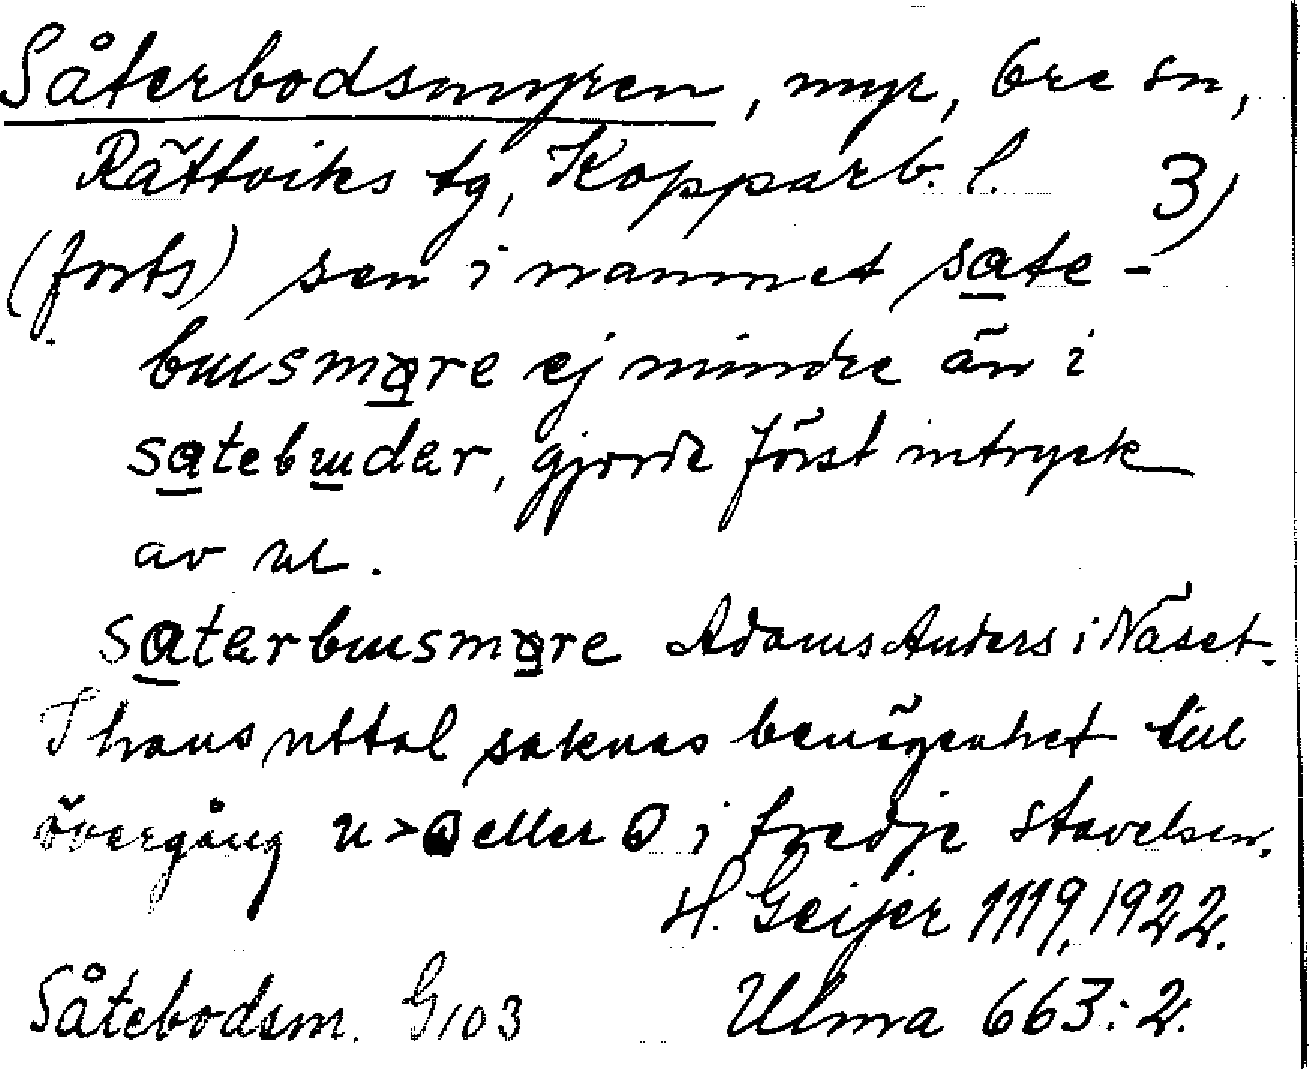 Såterbodsmyren, myr, Ore sn,
Rättviks tg, Kopparb. l. 3)
(forts) sen i namnet sate-
buusmøre ej mindre än i
satebuudar, gjorde först intryck
av ut.
saterbuusmøre Adams Anders i Näset.
I hans uttal saknas benägenhet till
övergång u > eller i tredje stavelsen.
H. Geijer 1119, 1922.
Såtebodsm. G103 Ulma 663:2.